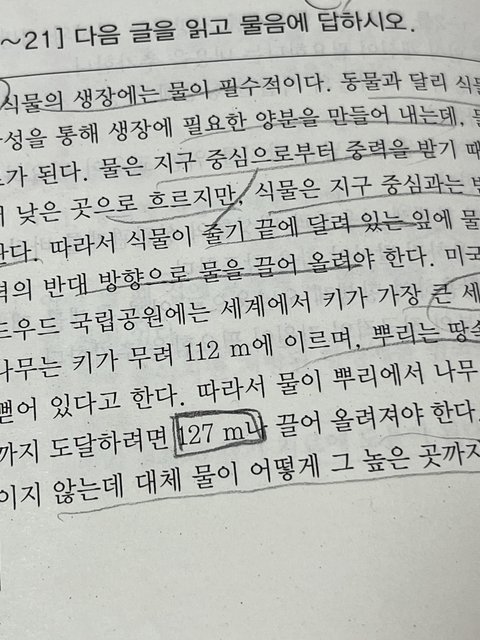 ~21] 다음 글을 읽고 물음에 답하시오.
식물의 생장에는 물이 필수적이다. 동물과 달리 식물
성을 통해 생장에 필요한 양분을 만들어 내는데,
가 된다. 물은 지구 중심으로부터 중력을 받기 때
낮은 곳으로 흐르지만, 식물은 지구 중심과는
한다. 따라서 식물이 줄기 끝에 달려 있는 잎에 물
력의 반대 방향으로 물을 끌어 올려야 한다. 미국
드우드 국립공원에는 세계에서 키가 가장 큰 세
나무는 키가 무려 112 m에 이르며, 뿌리는 땅속
뻗어 있다고 한다. 따라서 물이 뿌리에서 나무
까지 도달하려면 127 m나 끌어 올려져야 한다.
이지 않는데 대체 물이 어떻게 그 높은 곳까지